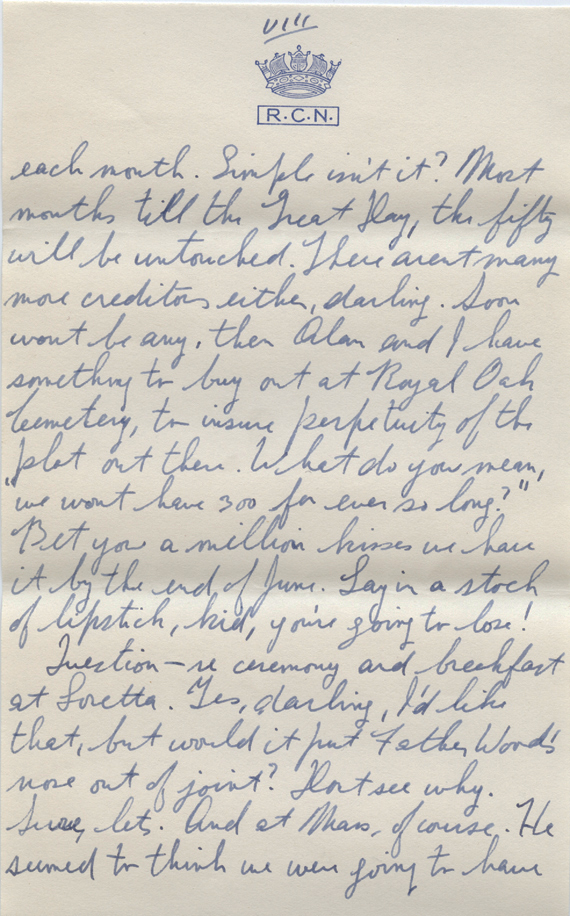 VIII
R.C.N.
each month. Simple isn't it? Most
months till the Great Day, the fifty
will be untouched. There arent many
more creditors either, darling. Soon
wont be any, then Alan and I have
something to buy out at Royal Oak
Cemetery, to insure perpetuity of the
plot out there. What do you mean,
"we wont have 300 for ever so long?"
Bet you a million kisses we have
it by the end of June. Lay in a stock
of lipstick, kid, you're going to lose!
Question – re ceremony and breakfast
at Loretta. Yes, darling, I'd like
that, but would it put Father Wood's
nose out of joint? Dont see why.
Sure, lets. And at Mass, of course. He
seemed to think we were going to have